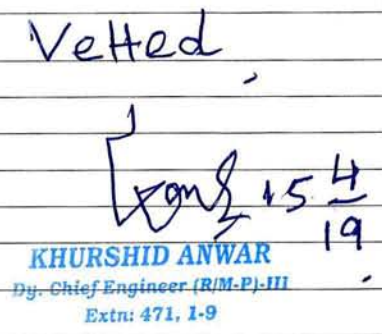 Vetted,
15 4/19
KHURSHID ANWAR
Dy. Chief Engineer (R/M-P)-III
Extn: 471, 1-9